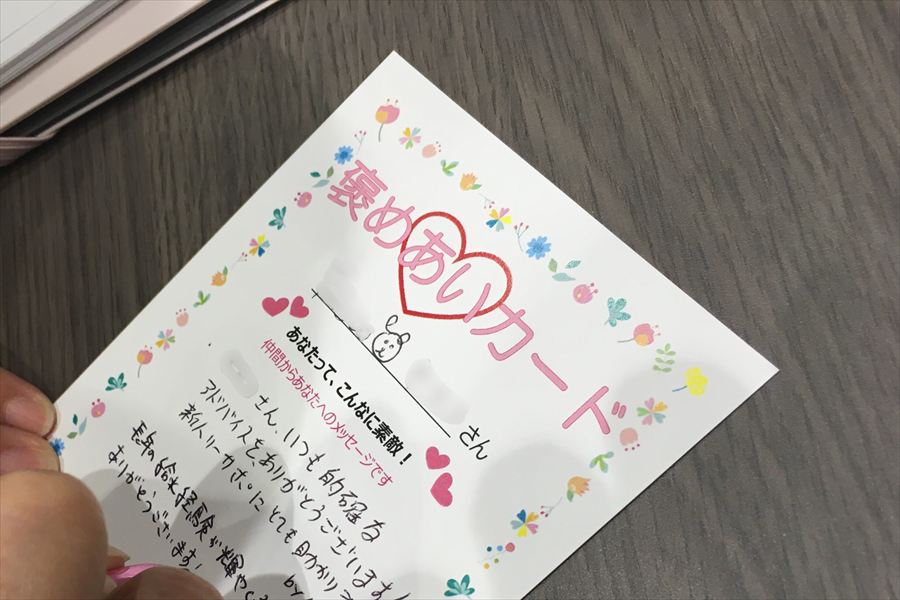 褒めあいカード
さん
あなたって、こんなに素敵!
仲間からあなたへのメッセージです
さん、いつも的確な
アドバイスをありがとうございます!
新人リーカ゛ーにとても助かり
長年の 経験が輝や
ありがとうございます!
by